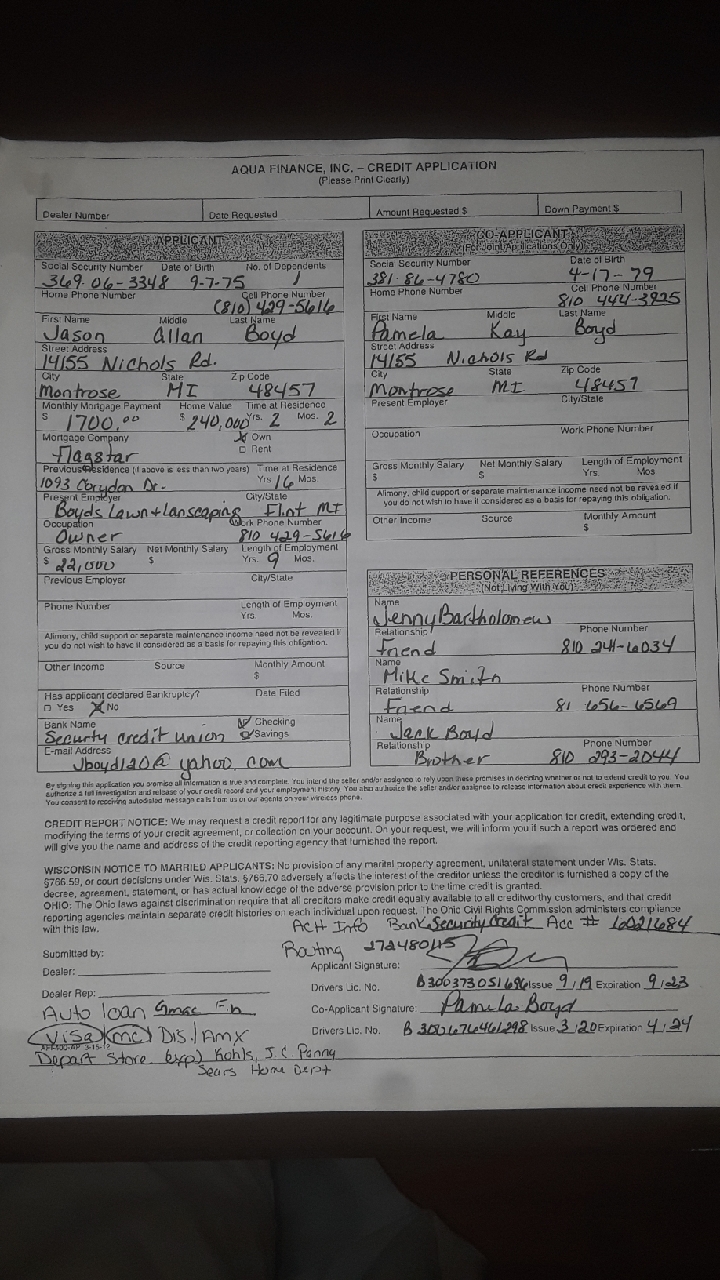 AQUA FINANCE, INC. – CREDIT APPLICATION
(Please Print Clearly)
Dealer Number Date Requested Amount Requested $ Down Payment $
APPLICANT
Social Security Number Date of Birth No. of Dependents
369-06-3348 9-7-75 1
Home Phone Number Cell Phone Number
(810) 429-5616
First Name Middle Last Name
Jason Allan Boyd
Street Address
14155 Nichols Rd.
City State Zip Code
Montrose MI 48457
Monthly Mortgage Payment Home Value Time at Residence
$ 1700.00 $ 240,000 Yrs. 2 Mos. 2
Mortgage Company Own
Flagstar Rent
Previous Residence (if above is less than two years) Time at Residence
1093 Corydon Dr. Yrs 16 Mos.
Present Employer City/State
Boyds Lawn + lanscaping Flint MI
Occupation Work Phone Number
Owner 810 429-5616
Gross Monthly Salary Net Monthly Salary Length of Employment
$ 22,000 $ Yrs. 9 Mos.
Previous Employer City/State
Phone Number Length of Employment
Yrs. Mos.
Alimony, child support or separate maintenance income need not be revealed if
you do not wish to have it considered as a basis for repaying this obligation.
Other Income Source Monthly Amount
$
Has applicant declared Bankruptcy? Date Filed
Yes No
Bank Name Checking
Securty credit union Savings
E-mail Address
Jboyd120@yahoo.com
CO-APPLICANT
(For Joint Applications Only)
Social Security Number Date of Birth
381-86-4780 4-17-79
Home Phone Number Cell Phone Number
810 444-3925
First Name Middle Last Name
Pamela Kay Boyd
Street Address
14155 Nichols Rd
City State Zip Code
Montrose MI 48457
Present Employer City/State
Occupation Work Phone Number
Gross Monthly Salary Net Monthly Salary Length of Employment
$ $ Yrs. Mos
Alimony, child support or separate maintenance income need not be revealed if
you do not wish to have it considered as a basis for repaying this obligation.
Other Income Source Monthly Amount
$
PERSONAL REFERENCES
(Not Living With You)
Name
Jenny Bartholomew
Relationship Phone Number
Friend 810 241-6034
Name
Mike Smith
Relationship Phone Number
Friend 81 656-6569
Name
Jack Boyd
Relationship Phone Number
Brother 810 293-2044
By signing this application you promise all information is true and complete. You intend the seller and/or assignee to rely upon these promises in deciding whether or not to extend credit to you. You
authorize a full investigation and release of your credit record and your employment history. You also authorize the seller and/or assignee to release information about credit experience with them.
You consent to receiving autodialed message calls from us or our agents on your wireless phone.
CREDIT REPORT NOTICE: We may request a credit report for any legitimate purpose associated with your application for credit, extending credit,
modifying the terms of your credit agreement, or collection on your account. On your request, we will inform you if such a report was ordered and
will give you the name and address of the credit reporting agency that furnished the report.
WISCONSIN NOTICE TO MARRIED APPLICANTS: No provision of any marital property agreement, unilateral statement under Wis. Stats.
§766.59, or court decisions under Wis. Stats. §766.70 adversely affects the interest of the creditor unless the creditor is furnished a copy of the
decree, agreement, statement, or has actual knowledge of the adverse provision prior to the time credit is granted.
OHIO: The Ohio laws against discrimination require that all creditors make credit equally available to all creditworthy customers, and that credit
reporting agencies maintain separate credit histories on each individual upon request. The Ohio Civil Rights Commission administers compliance
with this law.
ACH Info Bank Security Credit Acc # 16021684
Routing 272480115
Submitted by: Applicant Signature:
Dealer: Drivers Lic. No. Issue 9/19 Expiration 9/23
Dealer Rep: Co-Applicant Signature: Pamela Boyd
Auto loan Gmac Fin
Drivers Lic. No. Issue 3/20 Expiration 4/24
Visa MC Dis./Amx
Depart Store (exp) Kohls, J.C Penny
Sears Home Depot